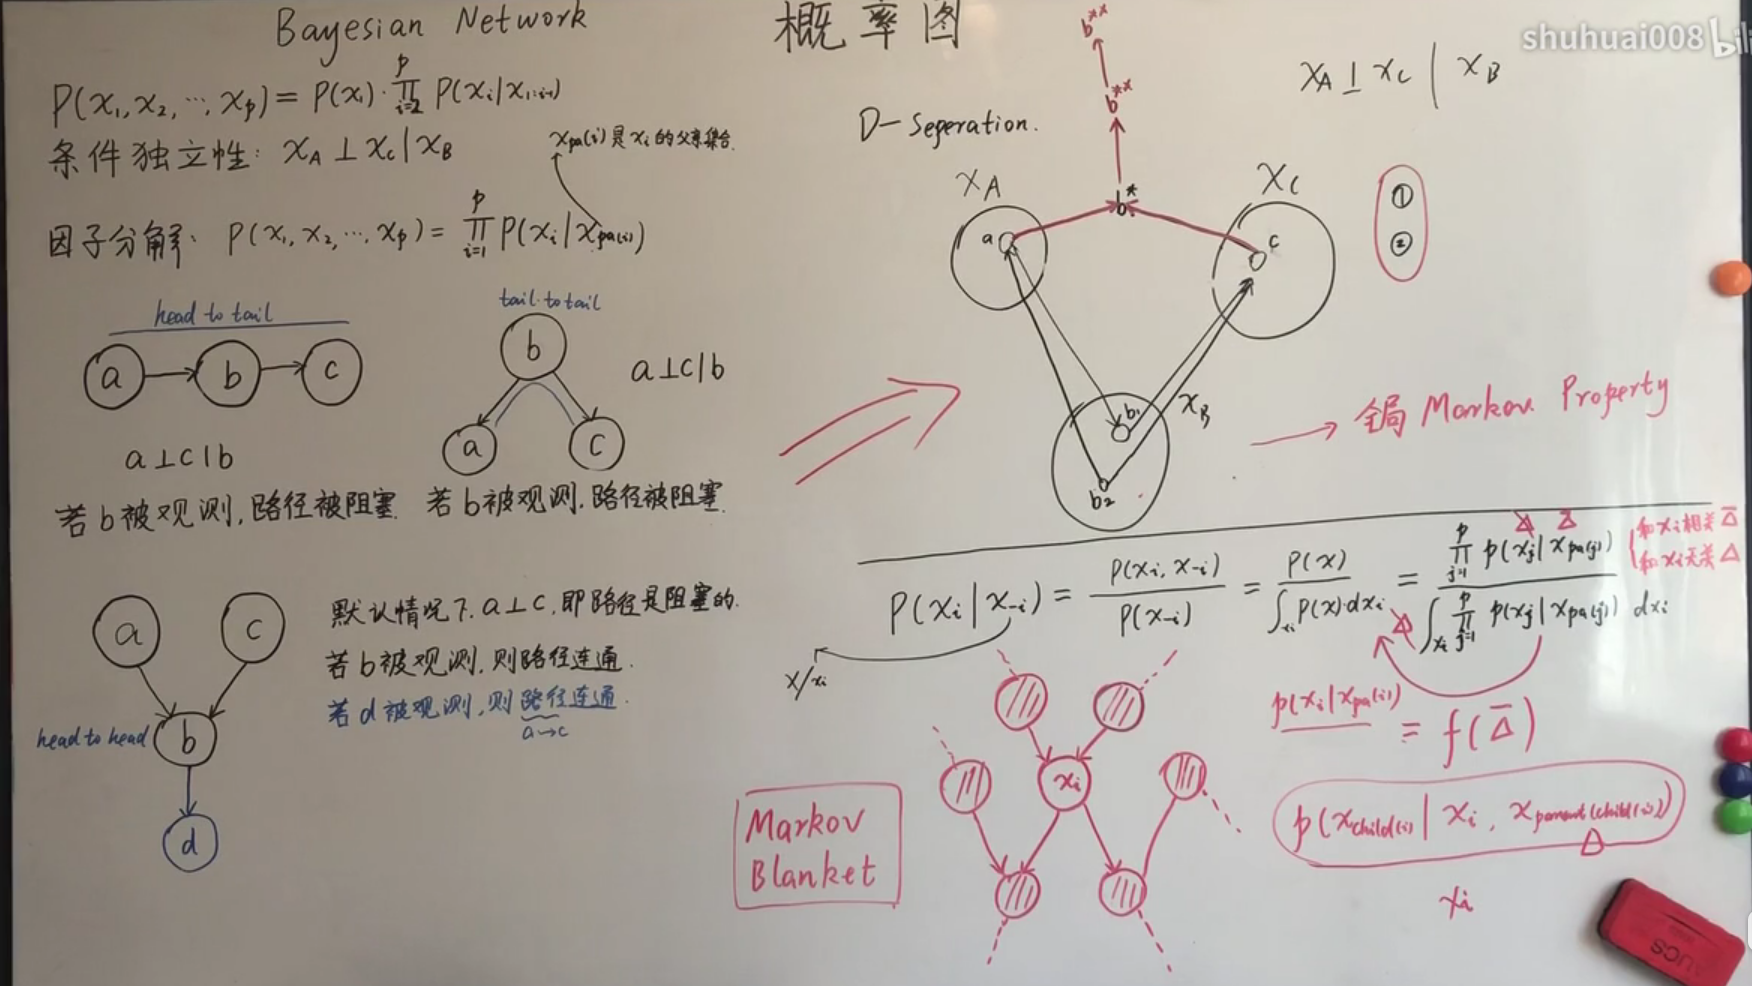 Bayesian Network
概率图
shuhuai008 bili
P(x₁, x₂, ⋯, xₚ) = P(x₁) · ∏_{i=2}^{p} P(xᵢ | x_{1:i-1})
条件独立性: x_A ⊥ x_C | x_B
x_{pa(i)} 是 xᵢ 的父亲集合.
因子分解: P(x₁, x₂, ⋯, xₚ) = ∏_{i=1}^{p} P(xᵢ | x_{pa(i)})
head to tail
a b c
a ⊥ c | b
若 b 被观测, 路径被阻塞.
tail to tail
b
a c
a ⊥ c | b
若 b 被观测. 路径被阻塞.
a c
b
d
head to head
默认情况下. a ⊥ c, 即路径是阻塞的.
若 b 被观测, 则路径连通.
若 d 被观测, 则路径连通.
a → c
D-Seperation.
x_A ⊥ x_C | x_B
b**
b**
b*
x_A
x_C
a
c
①
②
b₁
b₂
x_B
全局 Markov Property
P(xᵢ | x_{-i}) = P(xᵢ, x_{-i}) / P(x_{-i}) = P(x) / ∫_{xᵢ} P(x) dxᵢ = ∏_{j=1}^{p} P(xⱼ | x_{pa(j)}) / ∫_{xᵢ} ∏_{j=1}^{p} P(xⱼ | x_{pa(j)}) dxᵢ
x/xᵢ
和 xᵢ 相关 Δ̄
和 xᵢ 无关 Δ
p(xᵢ | x_{pa(i)})
= f(Δ̄)
p(x_{child(i)} | xᵢ, x_{parent(child(i))})
Δ
xᵢ
Markov
Blanket
xᵢ